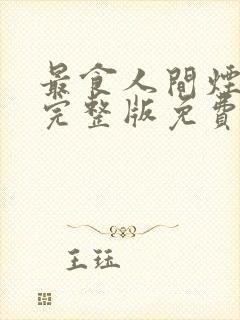 最食人間煙
完整版免費
王珏